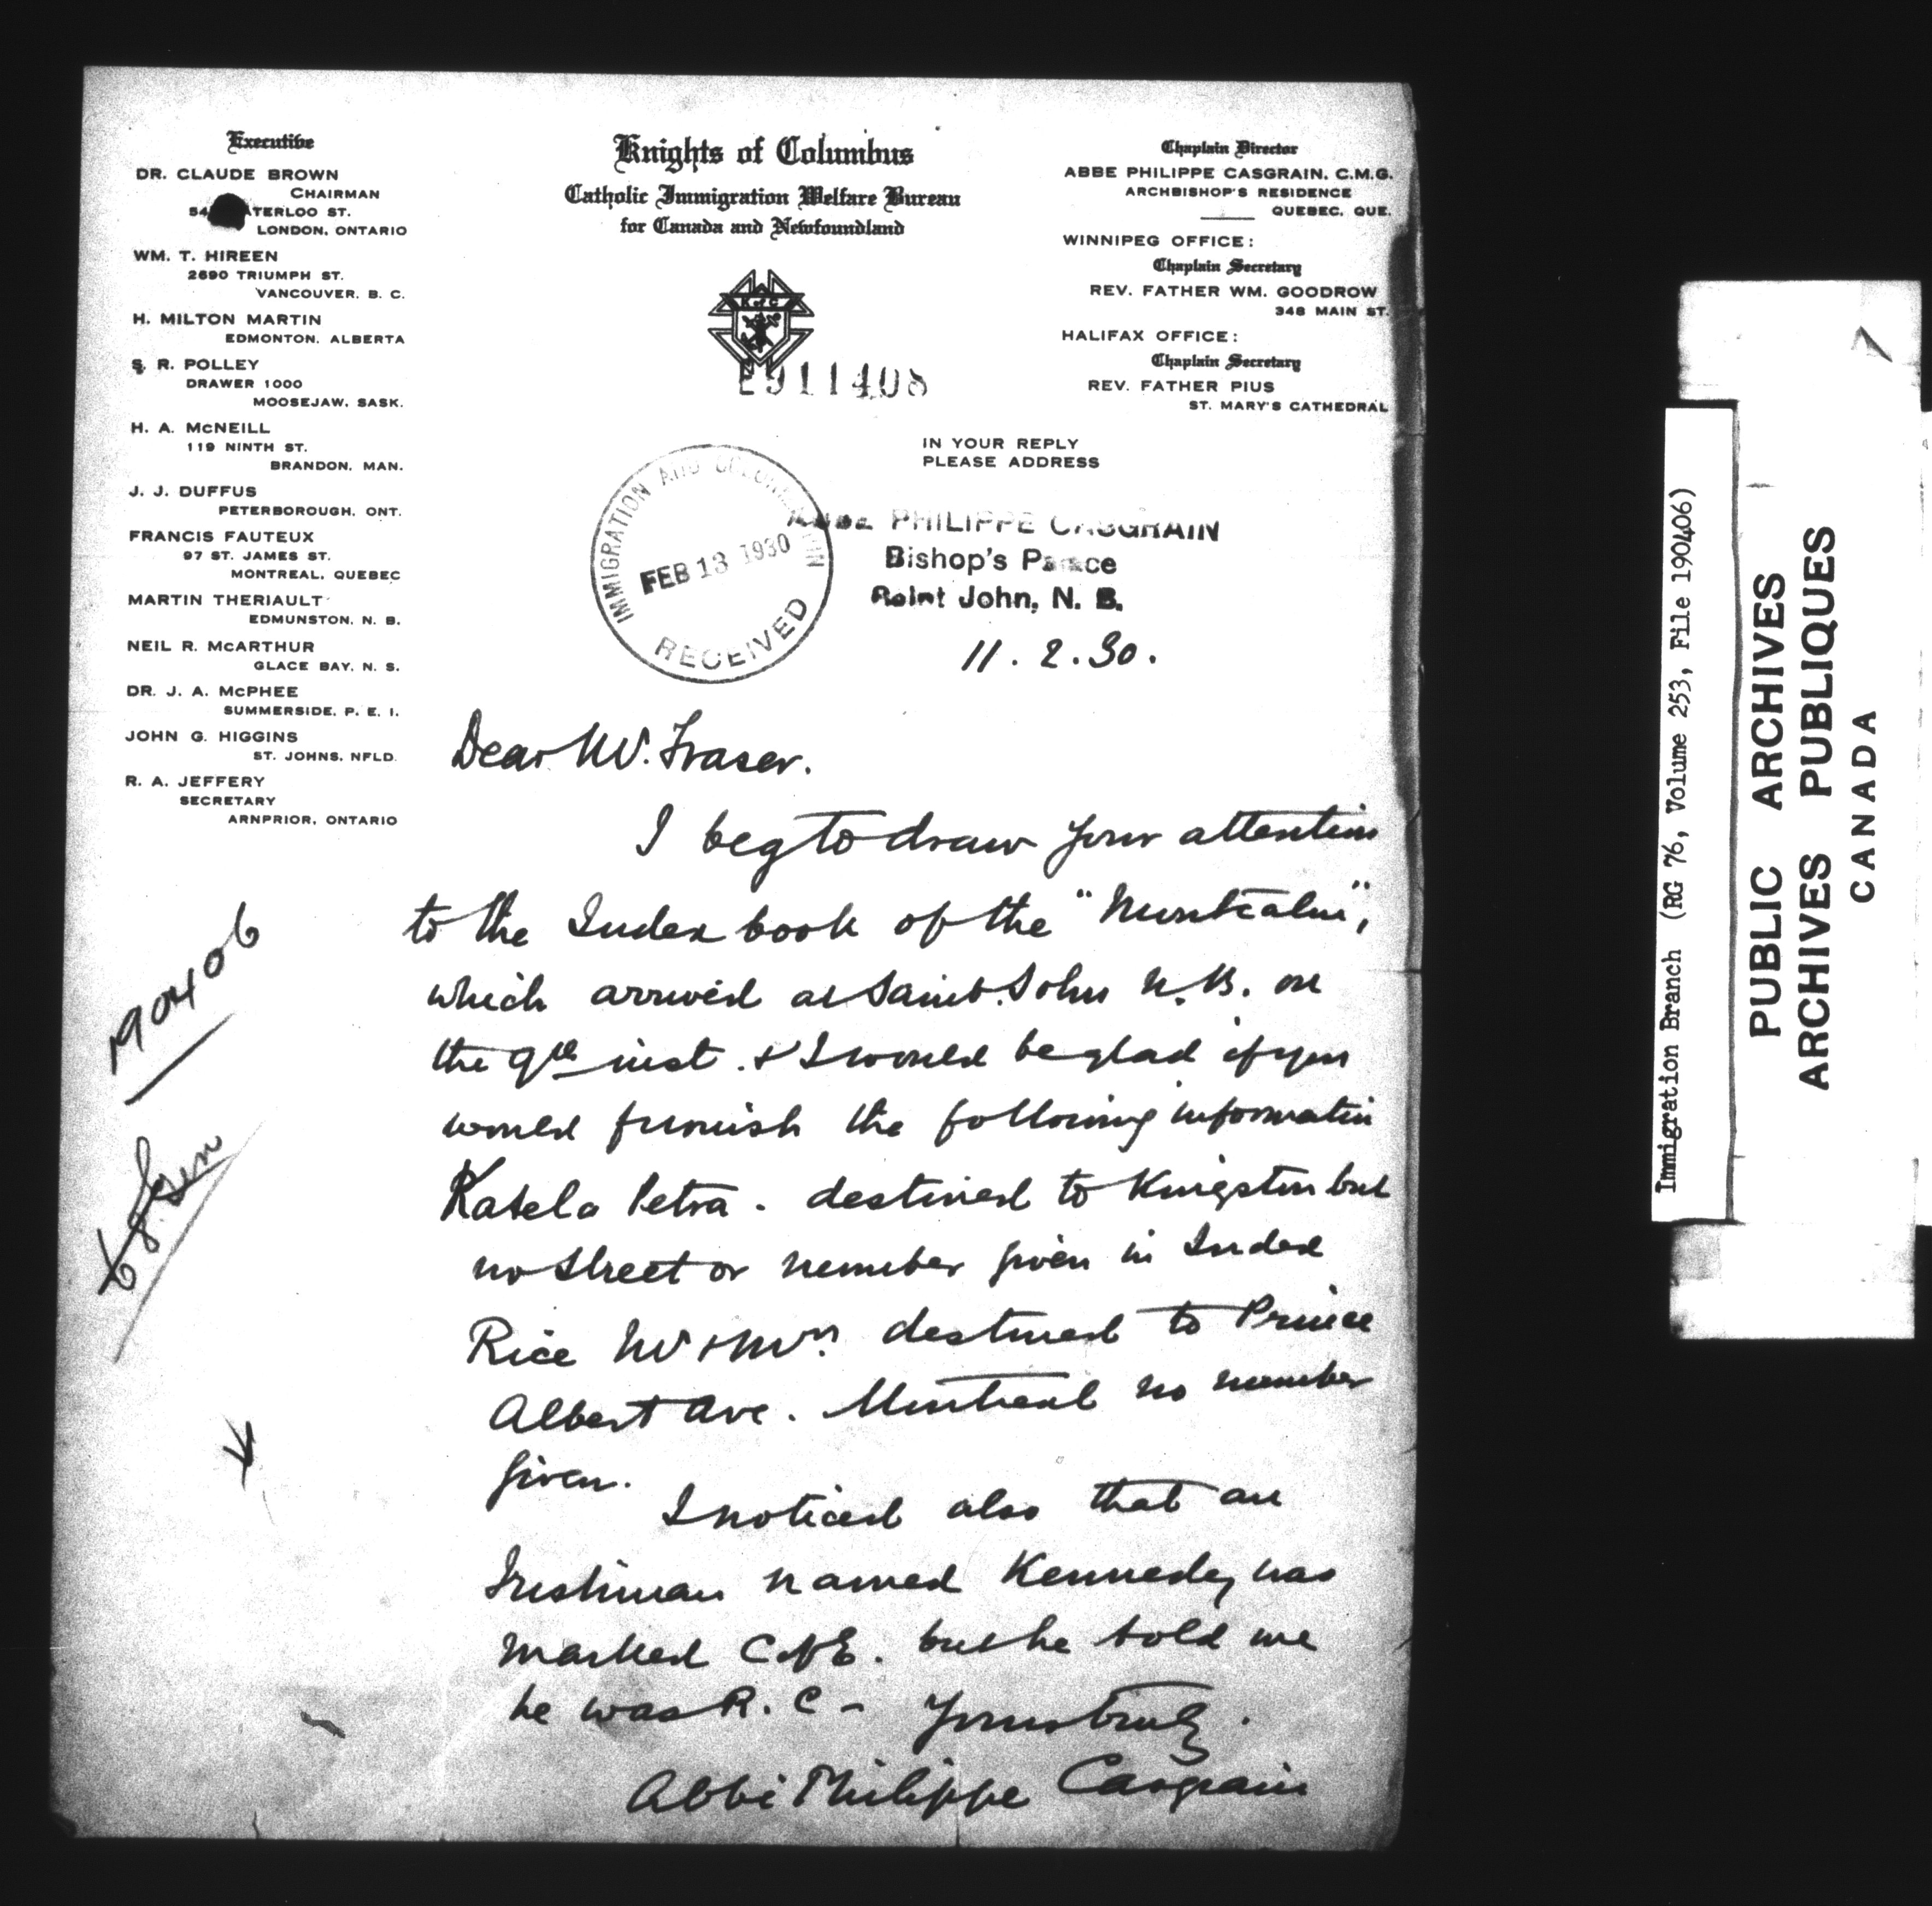 Executive
DR. CLAUDE BROWN
CHAIRMAN
54 ATERLOO ST.
LONDON, ONTARIO
WM. T. HIREEN
2690 TRIUMPH ST.
VANCOUVER, B. C.
H. MILTON MARTIN
EDMONTON, ALBERTA
S. R. POLLEY
DRAWER 1000
MOOSEJAW, SASK.
H. A. McNEILL
119 NINTH ST.
BRANDON, MAN.
J. J. DUFFUS
PETERBOROUGH, ONT.
FRANCIS FAUTEUX
97 ST. JAMES ST.
MONTREAL, QUEBEC
MARTIN THERIAULT
EDMUNSTON, N. B.
NEIL R. McARTHUR
GLACE BAY, N. S.
DR. J. A. McPHEE
SUMMERSIDE, P. E. I.
JOHN G. HIGGINS
ST. JOHNS, NFLD.
R. A. JEFFERY
SECRETARY
ARNPRIOR, ONTARIO
Knights of Columbus
Catholic Immigration Welfare Bureau
for Canada and Newfoundland
K of C
E911408
Chaplain Director
ABBE PHILIPPE CASGRAIN, C.M.G.
ARCHBISHOP'S RESIDENCE
QUEBEC, QUE.
WINNIPEG OFFICE:
Chaplain Secretary
REV. FATHER WM. GOODROW
348 MAIN ST.
HALIFAX OFFICE:
Chaplain Secretary
REV. FATHER PIUS
ST. MARY'S CATHEDRAL
IN YOUR REPLY
PLEASE ADDRESS
ABBE PHILIPPE CASGRAIN
Bishop's Palace
Saint John, N. B.
IMMIGRATION AND COLONIZATION
FEB 13 1930
RECEIVED
11. 2. 30.
Dear Mr. Fraser.
I beg to draw your attention
to the Index book of the "Montcalm",
which arrived at Saint. John N. B. on
the 9th inst. & I would be glad if you
would furnish the following information
Katela Petra. destined to Kingston but
no street or number given in Index
Rice Mr & Mrs. destined to Prince
Albert Ave. Montreal no number
given.
I noticed also that an
Irishman named Kennedy was
marked C of E. but he told me
he was R. C - Yours truly.
Abbé Philippe Casgrain
190406
Immigration Branch (RG 76, Volume 253, File 190406)
PUBLIC ARCHIVES
ARCHIVES PUBLIQUES
CANADA